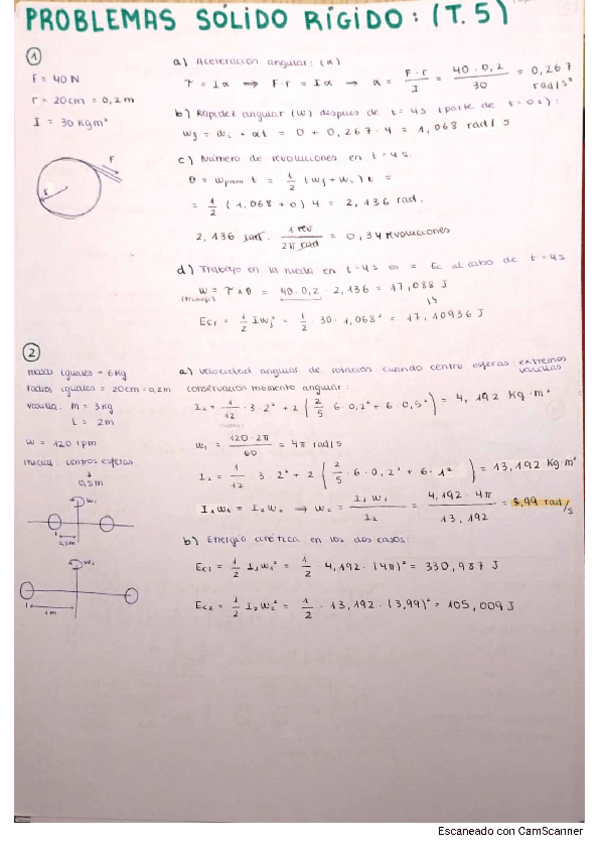 PROBLEMAS SÓLIDO RÍGIDO: (T. 5)
1
F = 40 N
r = 20cm = 0,2 m
I = 30 kgm²
F
r
a) Aceleración angular: (α)
τ = Iα ⟹ F·r = Iα → α = F·r / I = 40·0,2 / 30 = 0,267 rad/s²
b) Rapidez angular (ω) después de t = 4s (parte de t = 0s):
ωf = ωi + αt = 0 + 0,267·4 = 1,068 rad/s
c) Número de revoluciones en t = 4s.
θ = ωprom t = 1/2 (ωf + ωi) t =
= 1/2 (1,068 + 0) 4 = 2,136 rad.
2,136 rad. 1 rev / 2π rad = 0,34 revoluciones
d) Trabajo en la rueda en t = 4s es = Ec al cabo de t = 4s
W = τ·θ = 40·0,2 · 2,136 = 17,088 J
(trabajo)
Ecr = 1/2 Iωf² = 1/2 30·1,068² = 17,10936 J
2
masas iguales = 6kg
radios iguales = 20cm = 0,2m
varilla: m = 3kg
L = 2m
ω = 120 rpm
inicial: centros esferas
0,5m
ω1
0,5m
ω2
1m
a) velocidad angular de rotación cuando centro esferas: extremos varillas
conservación momento angular:
I1 = 1/12 · 3·2² + 2 (2/5 · 6·0,2² + 6·0,5²) = 4,192 kg·m²
ω1 = 120·2π / 60 = 4π rad/s
I2 = 1/12 · 3·2² + 2 (2/5 · 6·0,2² + 6·1²) = 13,192 kg·m²
I1ω1 = I2ω2 → ω2 = I1ω1 / I2 = 4,192·4π / 13,192 = 3,99 rad/s
b) Energía cinética en los dos casos:
Ec1 = 1/2 I1ω1² = 1/2 · 4,192·(4π)² = 330,987 J
Ec2 = 1/2 I2ω2² = 1/2 · 13,192·(3,99)² = 105,009 J
Escaneado con CamScanner